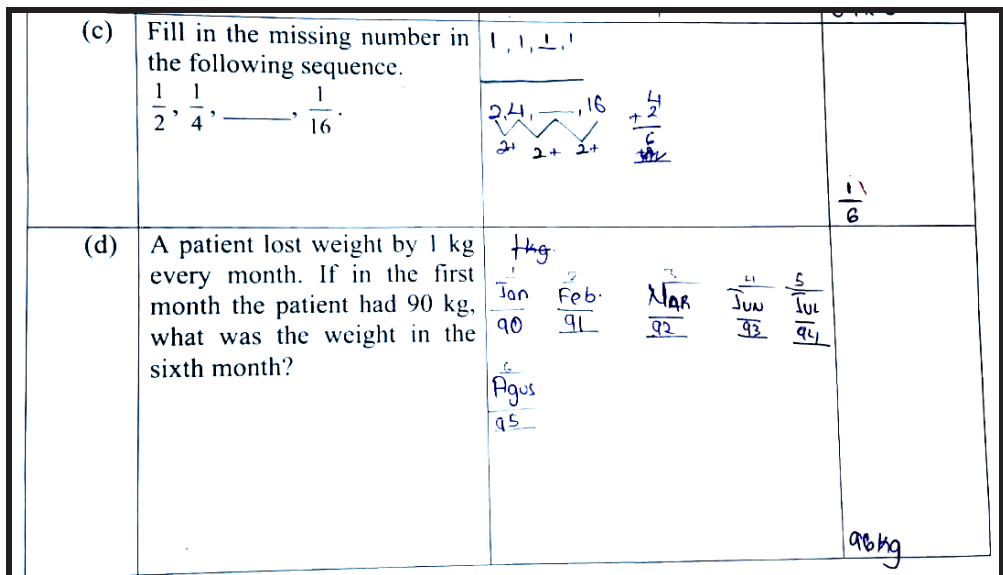 (c) Fill in the missing number in
the following sequence.
1/2, 1/4, ____, 1/16.
1, 1, 1, 1
2,4, __, 16
2+ 2+ 2+
4
+ 2
6
1/6
(d) A patient lost weight by 1 kg
every month. If in the first
month the patient had 90 kg,
what was the weight in the
sixth month?
1kg.
1 2 3 4 5
Jan Feb. MAR JUN JUL
90 91 92 93 94
6
Agus
95